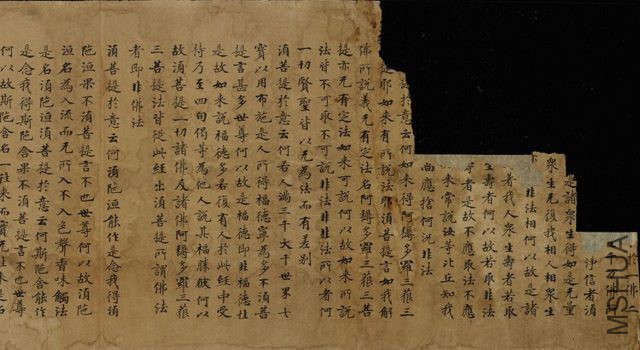 於佛二
淨信者須
是諸衆生得如是无量
衆生无復我相人相衆生
非法相何以故是諸
著我人衆生壽者若取
生壽者何以故若取非法
者是故不應取法不應
來常說汝等比丘知我
尚應捨何況非法
於意云何如來得阿耨多羅三藐三
提耶如來有所說法耶須菩提言如我解
佛所說義无有定法名阿耨多羅三藐三菩
提亦无有定法如來可說何以故如來所說
法皆不可取不可說非法非非法所以者何
一切賢聖皆以无為法而有差別
須菩提於意云何若人滿三千大千世界七
寶以用布施是人所得福德寧為多不須菩
提言甚多世尊何以故是福德即非福德性
是故如來說福德多若復有人於此經中受
持乃至四句偈等為他人說其福勝彼何以
故須菩提一切諸佛及諸佛阿耨多羅三藐
三菩提法皆從此經出須菩提所謂佛法
者即非佛法
須菩提於意云何須陁洹能作是念我得須
陁洹果不須菩提言不也世尊何以故須陁
洹名為入流而无所入不入色聲香味觸法
是名須陁洹須菩提於意云何斯陁含能作
是念我得斯陁含果不須菩提言不也世尊
何以故斯陁含名一往來而實无往來是名
MSHUA